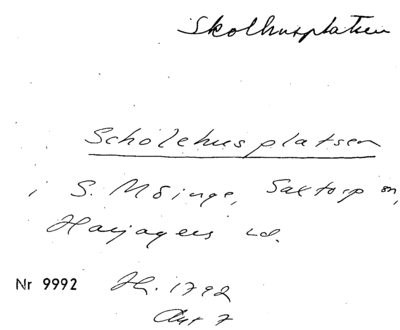 Skolhusplatsen
Scholehusplatsen
i S. Möinge, Saxtorp sn,
Harjagers hd.
Nr 9992 H. 1792
Akt 7